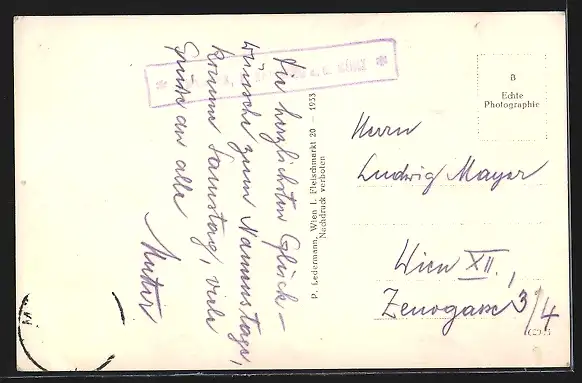 Die herzlichsten Glück-
wünsche zum Namenstage,
komme Samstag, viele
Grüße an alle
Mutter
P. Ledermann, Wien I. Fleischmarkt 20 — 1953
Nachdruck verboten
B
Echte
Photographie
Herrn
Ludwig Mayer
Wien XII.,
Zenogasse 3/4